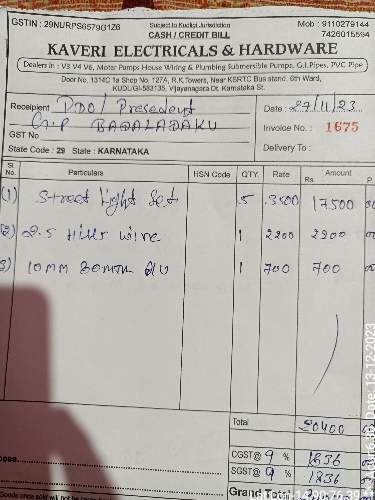 GSTIN : 29NURPS6579G1Z6 Subject to Kudligi Jurisdiction Mob : 9110279144
CASH / CREDIT BILL 7426015594
KAVERI ELECTRICALS & HARDWARE
Dealers in : V3 V4 V6, Motor Pumps House Wiring & Plumbing Submersible Pumps, G.I.Pipes, PVC Pipe
Door No. 1314C 1a Shop No. 127A, R.K.Towers, Near KSRTC Bus stand. 6th Ward,
KUDLIGI-583135, Vijayanagara Dt. Karnataka St.
Receipient PDO/ Presedent Date : 27/11/23
G.P BADALADAKU
GST No Invoice No. : 1675
State Code : 29 State : KARNATAKA Delivery To :
Sl. No. Particulars HSN Code QTY Rate Amount
Rs. P.
(1) Street light Set 5 3500 17500
(2) 2.5 wire 1 2200 2200
3) 10mm 1 700 700
Total 20400
CGST@ 9 % 1836
SGST@ 9 % 1836
Goods once sold will not be Grand Total
Date: 13-12-2023